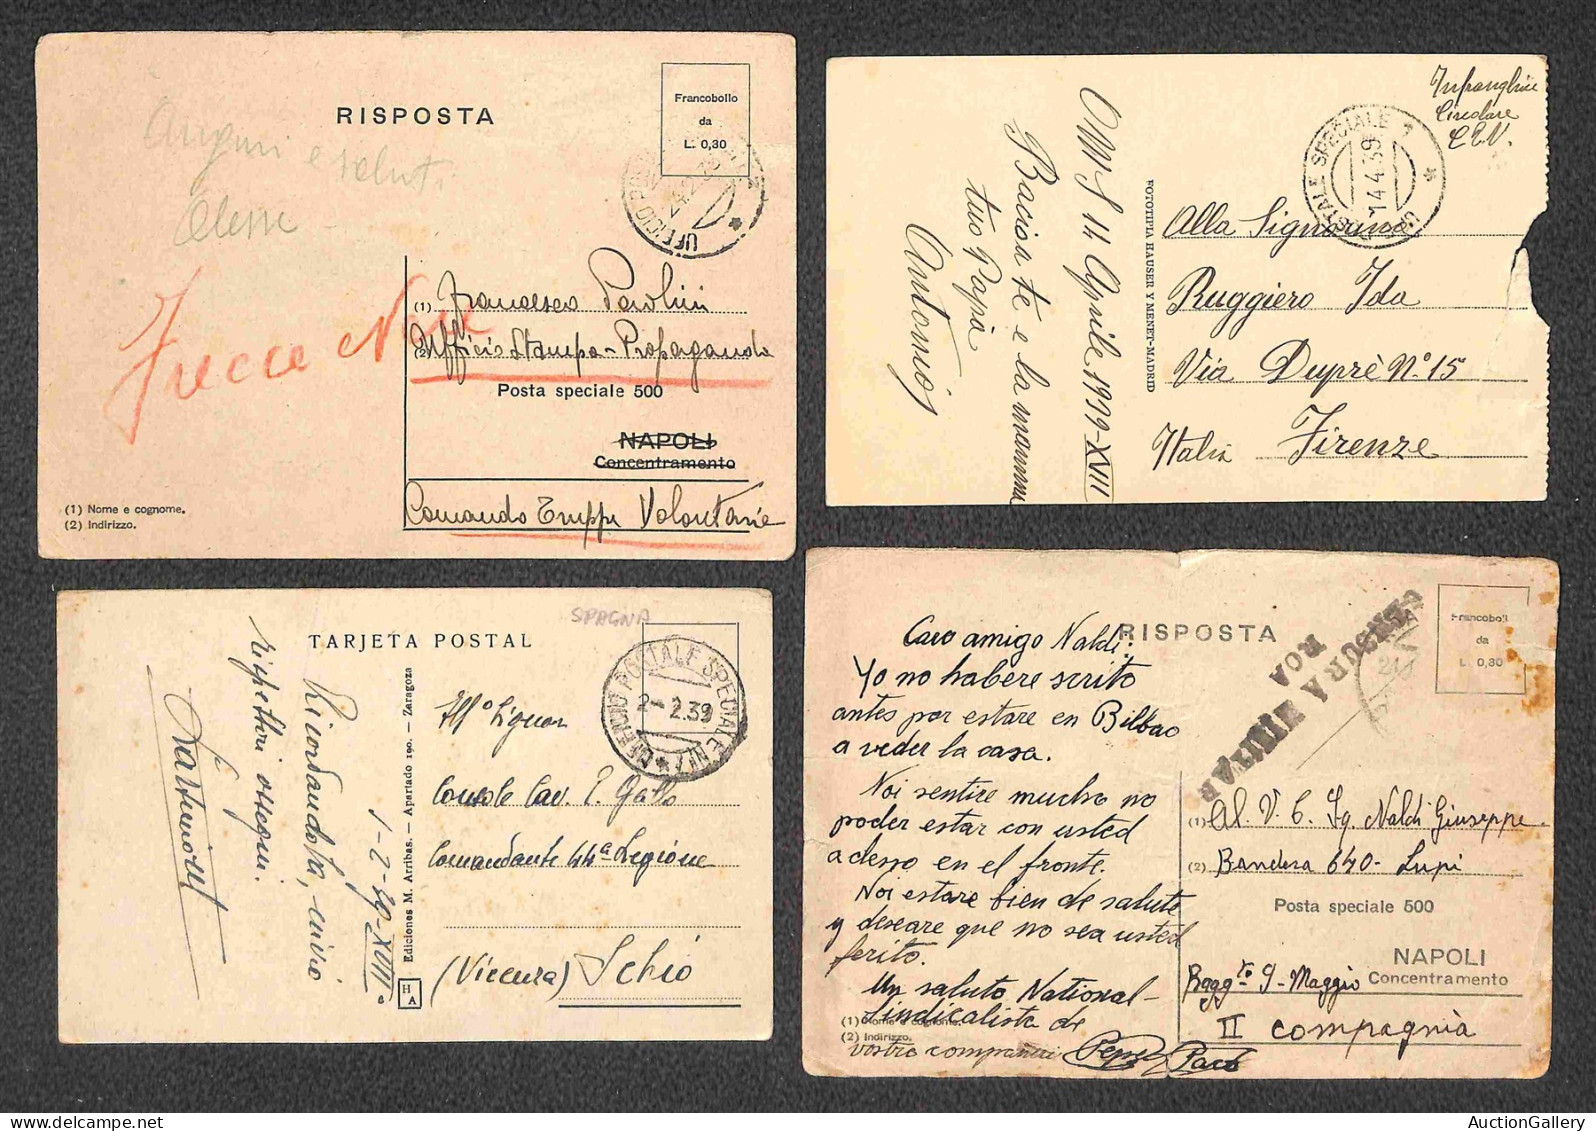 RISPOSTA
Francobollo
da
L. 0,30
Auguri
e saluti
UFFICIO
24.2.39
Frecce Nere
(1) Francesco Paolini
(2) Ufficio Stampa - Propaganda
Posta speciale 500
NAPOLI
Concentramento
Comando Truppe Volontarie
(1) Nome e cognome.
(2) Indirizzo.
OMS 14 Aprile 1939-XVII
Bacion te e la mamma
tuo Papà
Antonio
FOTOTIPIA HAUSER Y MENET.-MADRID
Circolare
UFF. POSTALE SPECIALE 7
14.4.39
Alla Signorina
Ruggiero Ida
Via Duprè N. 15
Italia Firenze
SPAGNA
TARJETA POSTAL
UFFICIO POSTALE SPECIALE N. 7
2-2.39
Ricordandola, invio
rispettosi ossequi.
1-2-39-XVII°
Ediciones M. Arribas. — Apartado 190. — Zaragoza
HA
Ill° Signor
Console Cav. E. Gatto
Comandante 44ª Legione
(Vicenza) Schio
RISPOSTA
Francoboll
da
L. 0,30
CENSURA MILITAR
ROA
Caro amigo Naldi:
Yo no habere scrito
antes por estare en Bilbao
a veder la casa.
Noi sentire mucho no
poder estar con usted
adesso en el fronte.
Noi estare bien de salute
y deseare que no sea usted
ferito.
Un saluto National-
Sindicalista de
vostro compañeri Pepe y Paco
(1) Nome e cognome.
(2) Indirizzo.
(1) Al V. C. Sq. Naldi Giuseppe
(2) Bandera 640 - Lupi
Posta speciale 500
NAPOLI
Concentramento
Ragg.to 9-Maggio
II compagnia
AuctionGallery